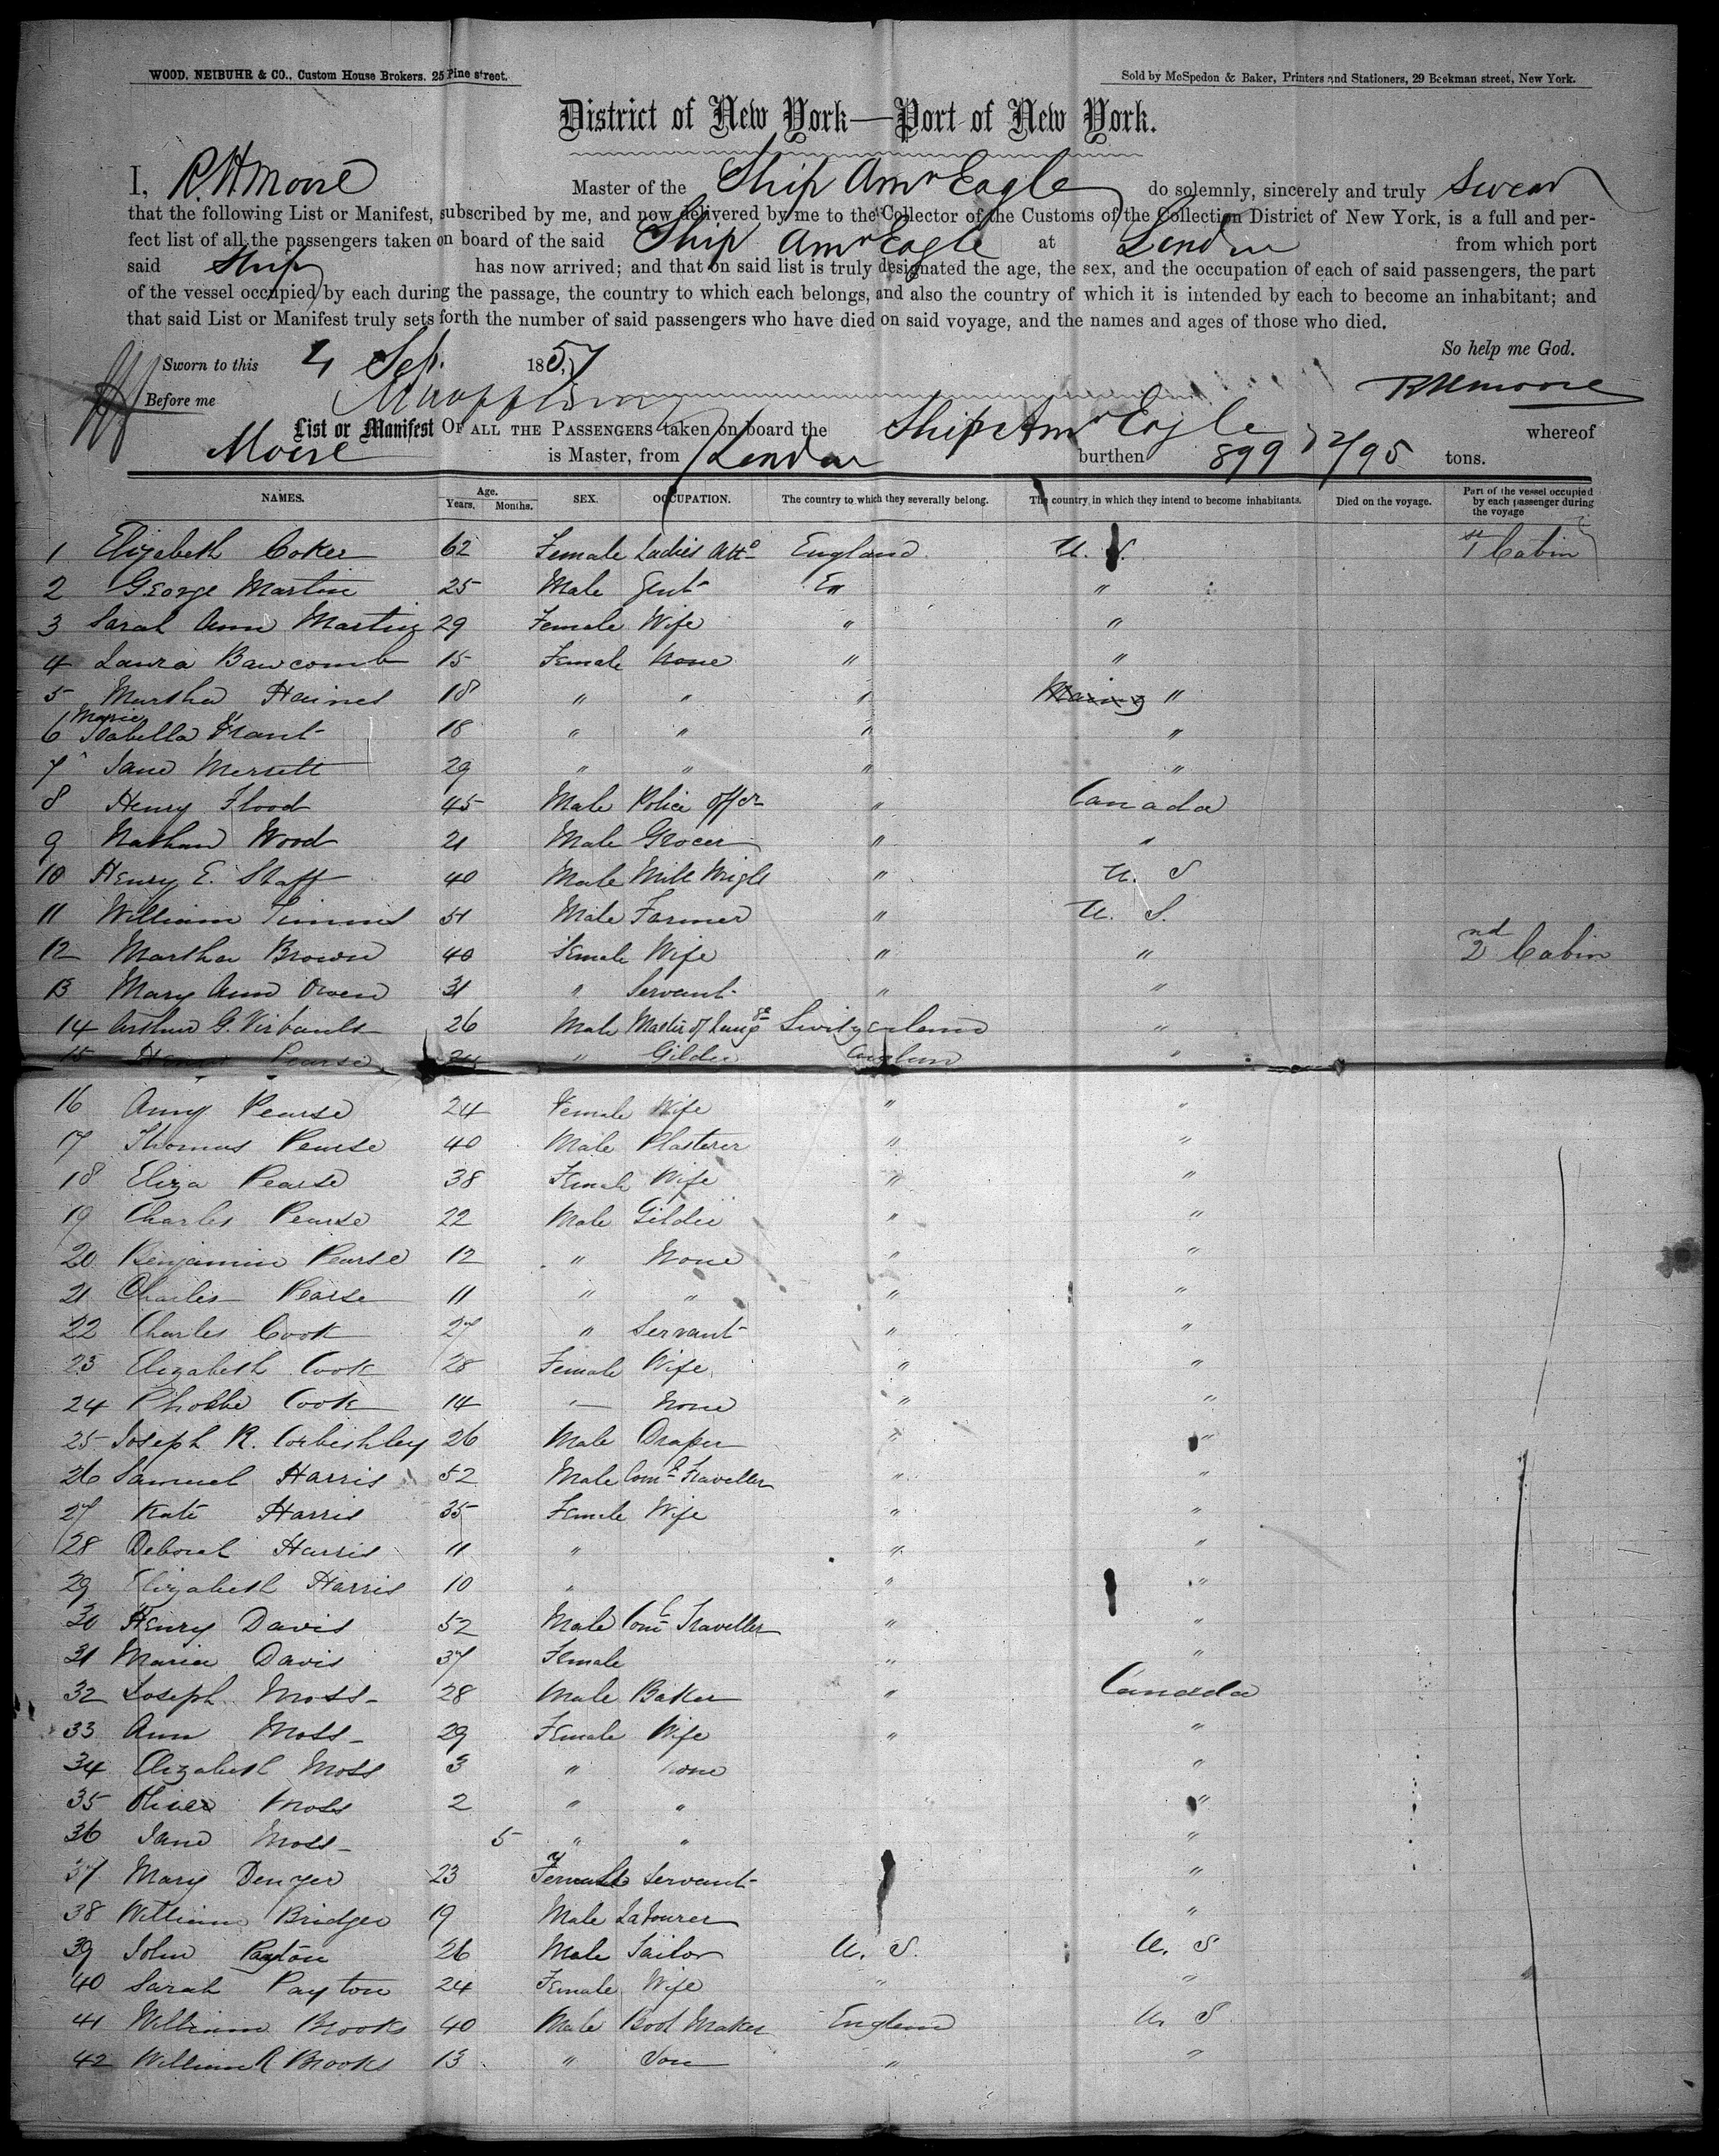 WOOD, NEIBUHR & CO., Custom House Brokers. 25 Pine street.
Sold by McSpedon & Baker, Printers and Stationers, 29 Beekman street, New York.
District of New York—Port of New York.
I, R H Moore Master of the Ship Amn Eagle do solemnly, sincerely and truly Swear
that the following List or Manifest, subscribed by me, and now delivered by me to the Collector of the Customs of the Collection District of New York, is a full and per-
fect list of all the passengers taken on board of the said Ship Amn Eagle at London from which port
said Ship has now arrived; and that on said list is truly designated the age, the sex, and the occupation of each of said passengers, the part
of the vessel occupied by each during the passage, the country to which each belongs, and also the country of which it is intended by each to become an inhabitant; and
that said List or Manifest truly sets forth the number of said passengers who have died on said voyage, and the names and ages of those who died.
So help me God.
Sworn to this 4 Sep. 1857
Before me R H Moore
List or Manifest OF ALL THE PASSENGERS taken on board the Ship Amn Eagle whereof
Moore is Master, from London burthen 899 2/95 tons.
NAMES. Age. Years. Months. SEX. OCCUPATION. The country to which they severally belong. The country in which they intend to become inhabitants. Died on the voyage. Part of the vessel occupied by each passenger during the voyage
1 Elizabeth Coker 62 Female Ladies Att England U. S. 1st Cabin
2 George Martin 25 Male Gent En "
3 Sarah Ann Martin 29 Female Wife " "
4 Laura Bawcomb 15 Female None " "
5 Martha Haines 18 " " " "
6 Marie Isabella Grant 18 " " " "
7 Jane Merrett 29 " " " "
8 Henry Flood 45 Male Police Offer " Canada
9 Nathan Wood 21 Male Grocer " "
10 Henry E. Staff 40 Male Mill Wright " U. S
11 William Timms 51 Male Farmer " U. S.
12 Martha Brown 40 Female Wife " " 2nd Cabin
13 Mary Ann Owen 31 " Servant " "
14 Arthur G. 26 Male Master of Languge Switzerland "
15 Pearse 24 " Gilder England "
16 Amy Pearse 24 Female Wife " "
17 Thomas Pearse 40 Male Plasterer " "
18 Eliza Pearse 38 Female Wife " "
19 Charles Pearse 22 Male Gilder " "
20 Benjamin Pearse 12 " None " "
21 Charles Pearse 11 " " " "
22 Charles Cook 27 " Servant " "
23 Elizabeth Cook 28 Female Wife " "
24 Phobbe Cook 14 " None " "
25 Joseph R. Corbishley 26 Male Draper " "
26 Samuel Harris 52 Male Coml Traveller " "
27 Kate Harris 35 Female Wife " "
28 Deborah Harris 11 " " "
29 Elizabeth Harris 10 " " "
30 Henry Davis 52 Male Coml Traveller " "
31 Maria Davis 37 Female " "
32 Joseph Moss 28 Male Baker " Canada
33 Ann Moss 29 Female Wife " "
34 Elizabeth Moss 3 " None "
35 Oliver Moss 2 " " "
36 Jane Moss 5 " " "
37 Mary Denyer 23 Female Servant "
38 William Bridges 19 Male Labourer "
39 John Payton 26 Male Tailor U. S. U. S
40 Sarah Payton 24 Female Wife " "
41 William Brooks 40 Male Boot Maker England U. S
42 William R Brooks 13 " Son " "